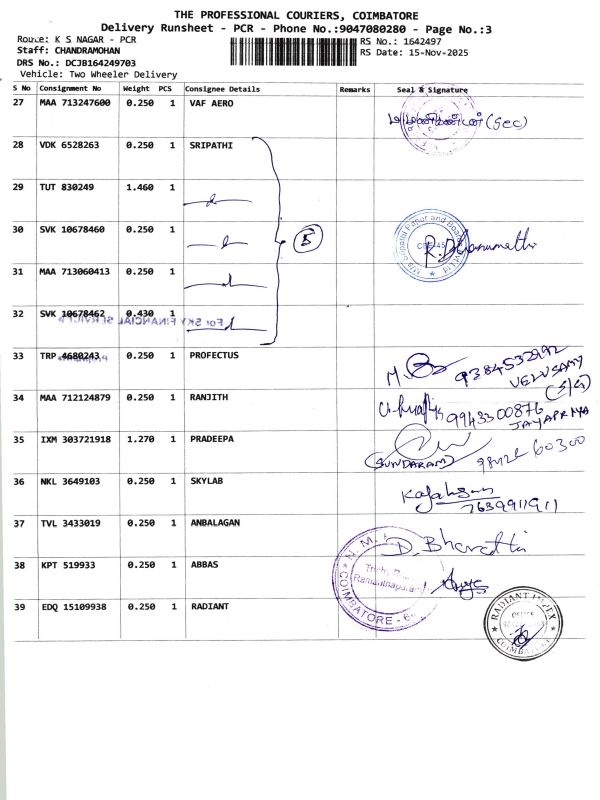 THE PROFESSIONAL COURIERS, COIMBATORE
Delivery Runsheet - PCR - Phone No.:9047080280 - Page No.:3
Route: K S NAGAR - PCR
RS No.: 1642497
Staff: CHANDRAMOHAN
RS Date: 15-Nov-2025
DRS No.: DCJB164249703
Vehicle: Two Wheeler Delivery
S No Consignment No Weight PCS Consignee Details Remarks Seal & Signature
27 MAA 713247600 0.250 1 VAF AERO
(Sec)
28 VDK 6528263 0.250 1 SRIPATHI
29 TUT 830249 1.460 1
30 SVK 10678460 0.250 1
5
R. Dhanumathi
31 MAA 713060413 0.250 1
32 SVK 10678462 0.430 1
For SKY FINANCIAL SERVICES
33 TRP 4680243 0.250 1 PROFECTUS
9384532192
VELUSAMY
(S/G)
34 MAA 712124879 0.250 1 RANJITH
9943300876
JAYAPRIYA
35 IXM 303721918 1.270 1 PRADEEPA
(SUNDARAM)
60300
36 NKL 3649103 0.250 1 SKYLAB
7639911911
37 TVL 3433019 0.250 1 ANBALAGAN
D. Bharathi
38 KPT 519933 0.250 1 ABBAS
COIMBATORE
39 EDQ 15109938 0.250 1 RADIANT
RADIANT IMPEX
COIMBATORE